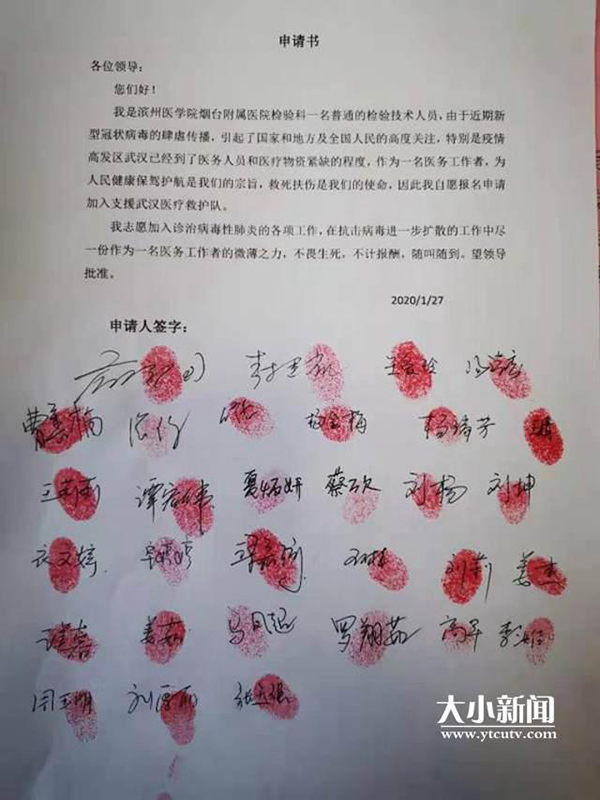 申请书
各位领导:
您们好！
我是滨州医学院烟台附属医院检验科一名普通的检验技术人员，由于近期新
型冠状病毒的肆虐传播，引起了国家和地方及全国人民的高度关注，特别是疫情
高发区武汉已经到了医务人员和医疗物资紧缺的程度，作为一名医务工作者，为
人民健康保驾护航是我们的宗旨，救死扶伤是我们的使命，因此我自愿报名申请
加入支援武汉医疗救护队。
我志愿加入诊治病毒性肺炎的各项工作，在抗击病毒进一步扩散的工作中尽
一份作为一名医务工作者的微薄之力，不畏生死，不计报酬，随叫随到。望领导
批准。
2020/1/27
申请人签字：
杨金梅 杨靖芳
王莉莉 夏炳妍 蔡欣 刘杨 刘坤
衣文婷 刘莉 姜杰
姜茹 罗翔茹 高平
周玉明
大小新闻
www.ytcutv.com